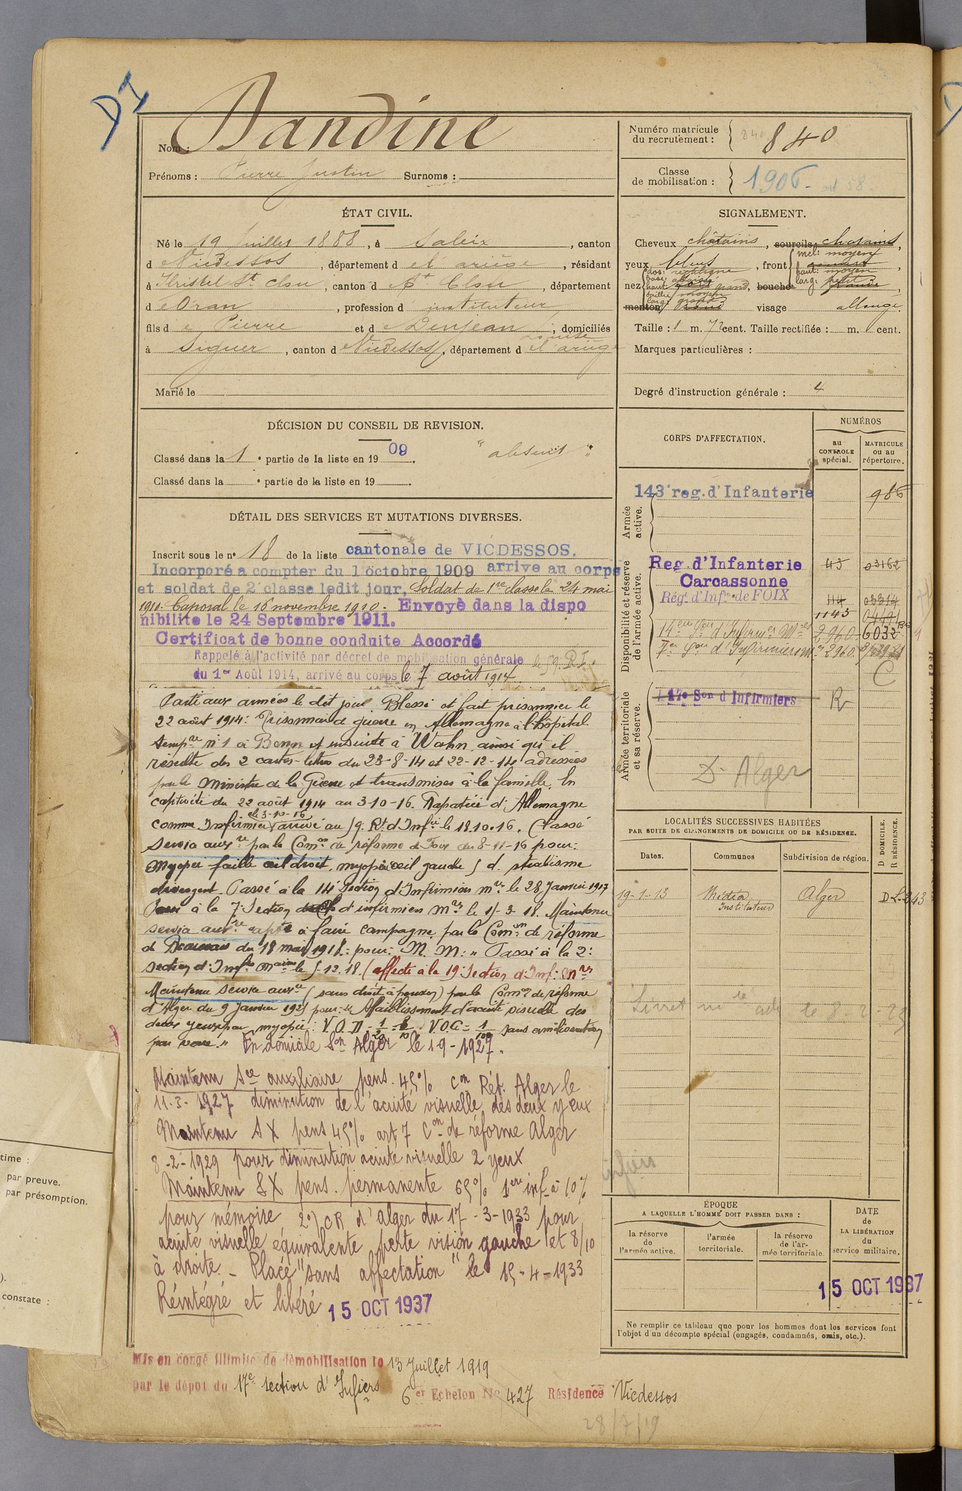 D1
Nom : Dandine
Prénoms : Pierre Justin Surnoms :
Numéro matricule du recrutement : 840
Classe de mobilisation : 1906
ÉTAT CIVIL.
Né le 19 Juillet 1888, à Saleix, canton
d Vicdessos, département d e l'ariège, résidant
à St Clou, canton d St Clou, département
d'Oran, profession d instituteur
fils d e Pierre et d e Denjean Louise, domiciliés
à Siguer, canton d Vicdessos, département d e l'ariège
Marié le
SIGNALEMENT.
Cheveux chatains, sourcils chatains,
yeux bleus, front
nez, bouche
menton visage allongé
Taille : 1 m. cent. Taille rectifiée : m. cent.
Marques particulières :
Degré d'instruction générale : 4
DÉCISION DU CONSEIL DE REVISION.
Classé dans la 1e partie de la liste en 1909 "absent"
Classé dans la e partie de la liste en 19
DÉTAIL DES SERVICES ET MUTATIONS DIVERSES.
Inscrit sous le no 18 de la liste cantonale de VICDESSOS.
Incorporé a compter du 1 octobre 1909 arrive au corps
et soldat de 2e classe ledit jour, Soldat de 1re classe le 24 mai
1911. Caporal le 16 novembre 1910. Envoyé dans la dispo
nibilite le 24 Septembre 1911.
Certificat de bonne conduite Accordé
Rappelé à l'activité par décret de mobilisation générale
du 1er Août 1914, arrivé au corps le 7 août 1914.
Parti aux armées le dit jour Blessé et fait prisonnier le
22 août 1914. Prisonnier de guerre en Allemagne à l'hôpital
temp.re no 1 à Bonn et ensuite à Wahn ainsi qu'il
résulte des 2 cartes-lettres du 23-8-14 et 22-12-14 adressées
par le Ministre de la Guerre et transmises à la famille. En
captivité du 22 août 1914 au 3-10-16. Rapatrié d'Allemagne
comme Infirmier le 3-10-16 arrivé au 59 Rt d'Infie le 18.10.16. Classé
service auxre par la Comon de réforme de Foix du 8-11-16 pour:
Myopie faible œil droit, myopie œil gauche 5 d. strabisme
divergent. Passé à la 14e Section d'Infirmiers mres le 28 Janvier 1917
Passé à la 7e Section d'infirmiers Mres le 1-3-18. Maintenu
service auxre apte à faire campagne par la Comon de réforme
de Beauvais du 18 mai 1918: pour: M. M. " Passé à la 2e
section d'Infrs Mres le 5.12.18. (affecté à la 19e Section d'Inf: Mres
Maintenu service auxre (sans droit à pension) par la Comon de réforme
d'Alger du 9 Janvier 1925 pour: Affaiblissement d'acuité visuelle des
deux yeux par myopie: V.O.D = V.O.G = sans amélioration
par verre." En domicile Son Alger le 19-1927.
Maintenu Sce auxiliaire pens. 45% Con Réf. Alger le
11-3-1927 diminution de l'acuité visuelle des deux yeux
Maintenu SX pens 45% art 7 Con de réforme Alger
8-2-1929 pour diminution acuité visuelle 2 yeux
Maintenu SX pens. permanente 65% 1ere inf à 10%
pour mémoire 2e CR d'Alger du 17-3-1933 pour
acuité visuelle équivalente perte vision gauche et 8/10
à droite - Placé "sans affectation" le 15-4-1933
Réintégré et libéré 15 OCT 1937
Mis en congé illimité de démobilisation le 13 Juillet 1919
par le dépôt du 17e section d'Infiers
6er Echelon No 427 Résidence Vicdessos
28/7/19
CORPS D'AFFECTATION.
NUMÉROS
au CONTROLE spécial.
MATRICULE ou au répertoire.
Armée active.
143e reg. d'Infanterie 986
Disponibilité et réserve de l'armée active.
Reg. d'Infanterie Carcassonne 45 03162
Régt d'Infie de FOIX 114 03314
1145
14e Son d'Infirers Mres 2960 6032
7e Son d'Infirmiers Mres 2960
C
Armée territoriale et sa réserve.
17e Son d'Infirmiers R
D. Alger
LOCALITÉS SUCCESSIVES HABITÉES
PAR SUITE DE CHANGEMENTS DE DOMICILE OU DE RÉSIDENCE.
Dates. Communes Subdivision de région. D DOMICILE. R RÉSIDENCE.
19-1-13 Médéa Instituteur Alger D
Livret le 8-2-29
infirs
ÉPOQUE
A LAQUELLE L'HOMME DOIT PASSER DANS :
la réserve de l'armée active.
l'armée territoriale.
la réserve de l'armée territoriale.
DATE de LA LIBÉRATION du service militaire.
15 OCT 1937
Ne remplir ce tableau que pour les hommes dont les services font
l'objet d'un décompte spécial (engagés, condamnés, omis, etc.).
time :
par preuve.
par présomption.
).
constate :